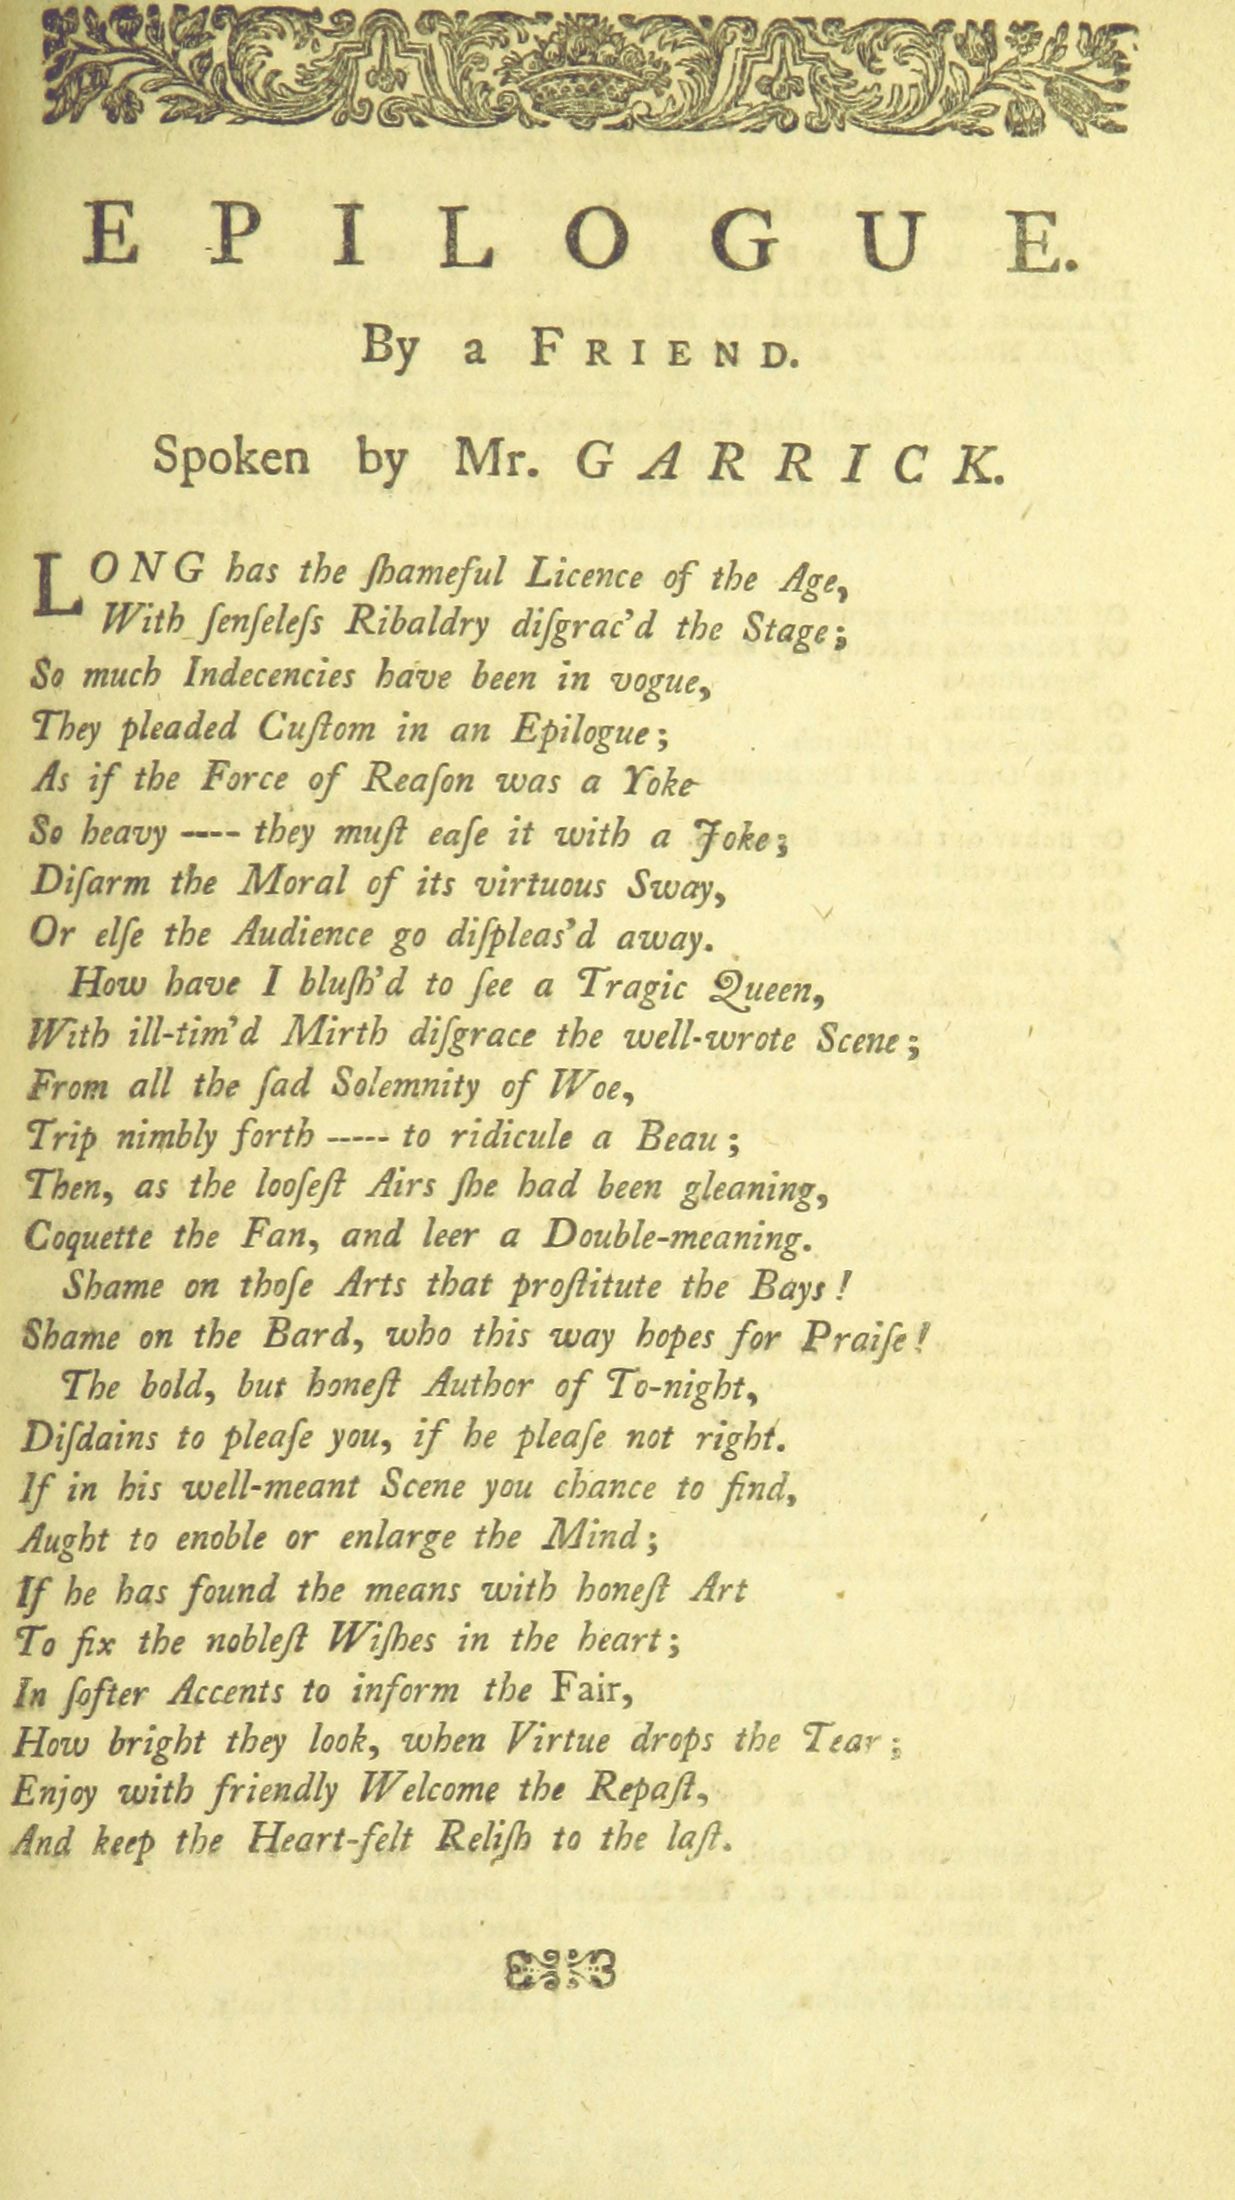 EPILOGUE.
By a FRIEND.
Spoken by Mr. GARRICK.
LONG has the ſhameful Licence of the Age,
With ſenſeleſs Ribaldry diſgrac'd the Stage;
So much Indecencies have been in vogue,
They pleaded Cuſtom in an Epilogue;
As if the Force of Reaſon was a Yoke
So heavy ---- they muſt eaſe it with a Joke;
Diſarm the Moral of its virtuous Sway,
Or elſe the Audience go diſpleas'd away.
How have I bluſh'd to ſee a Tragic Queen,
With ill-tim'd Mirth diſgrace the well-wrote Scene;
From all the ſad Solemnity of Woe,
Trip nimbly forth ----- to ridicule a Beau;
Then, as the looſeſt Airs ſhe had been gleaning,
Coquette the Fan, and leer a Double-meaning.
Shame on thoſe Arts that proſtitute the Bays!
Shame on the Bard, who this way hopes for Praiſe!
The bold, but honeſt Author of To-night,
Diſdains to pleaſe you, if he pleaſe not right.
If in his well-meant Scene you chance to find,
Aught to enoble or enlarge the Mind;
If he has found the means with honeſt Art
To fix the nobleſt Wiſhes in the heart;
In ſofter Accents to inform the Fair,
How bright they look, when Virtue drops the Tear;
Enjoy with friendly Welcome the Repaſt,
And keep the Heart-felt Reliſh to the laſt.